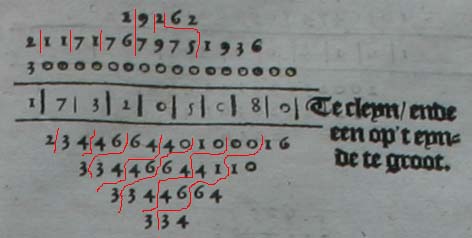 2 9 2 6 2
2 1 1 7 1 7 6 7 9 7 5 1 9 3 6
3 0 0 0 0 0 0 0 0 0 0 0 0 0 0 0 0
1 | 7 | 3 | 2 | 0 | 5 | 0 | 8 | 0 |
Te cleyn/ ende
een op't eyn-
de te groot.
2 3 4 4 6 6 4 4 0 1 0 0 0 1 6
3 3 4 4 6 6 4 4 1 1 0
3 3 4 4 6 6 4
3 3 4